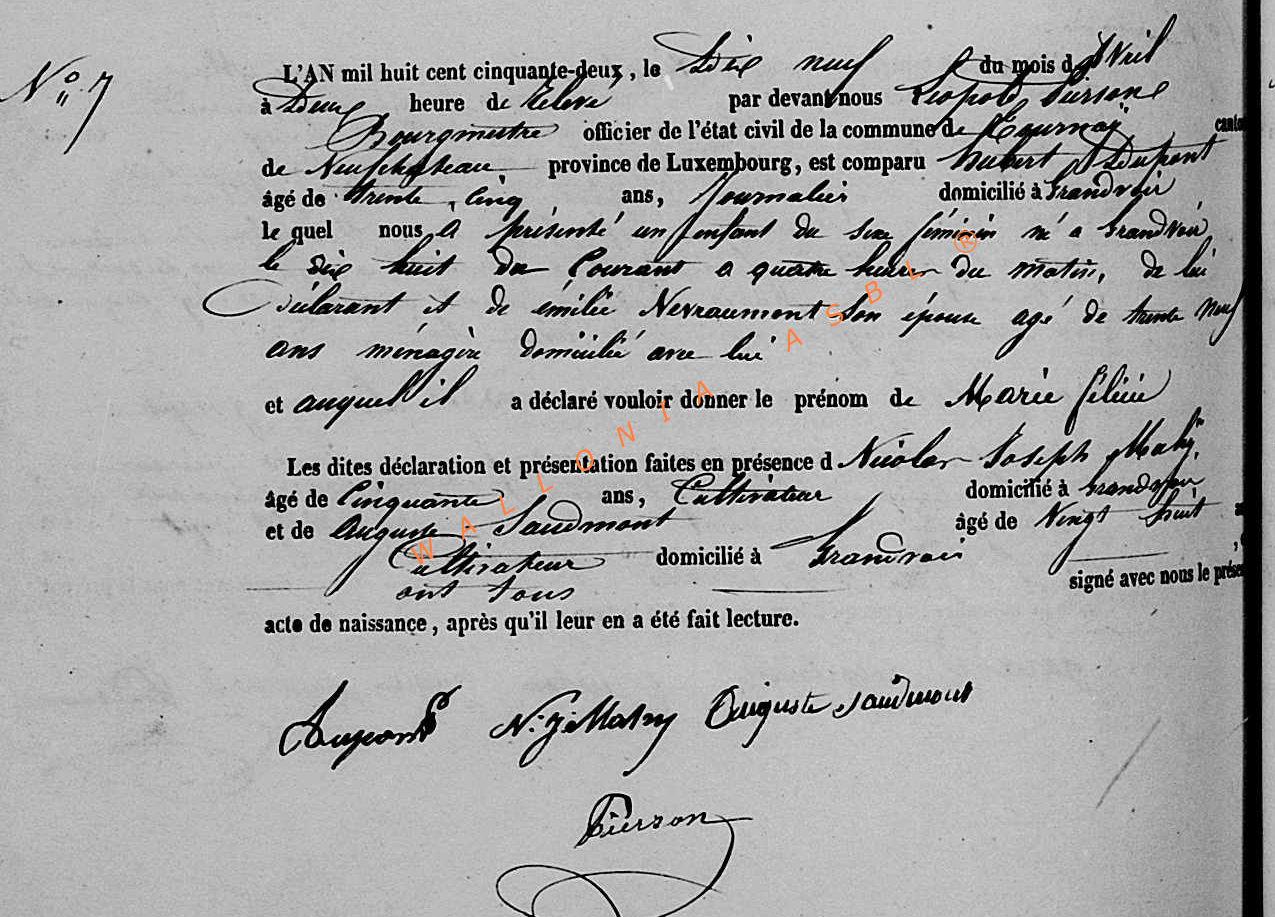 N° 7
L'AN mil huit cent cinquante-deux, le Dix neuf du mois d'Avril
à Deux heure de Relevé par devant nous Léopold Pierson
Bourgmestre officier de l'état civil de la commune de Tournay canto
de Neufchateau, province de Luxembourg, est comparu hubert Dupont
âgé de trente cinq ans, Journalier domicilié à Grandvoir
le quel nous a présenté un enfant du sexe féminin né a Grandvoir
le dix huit du Courant a quatre heures du matin, de lui
Déclarant et de émilie Nevraumont son épouse agé de trente neuf
ans ménagère domicilié avec lui
et auquel il a déclaré vouloir donner le prénom de Marie
Les dites déclaration et présentation faites en présence d Nicolas Joseph Mahy,
âgé de Cinquante ans, Cultivateur domicilié à Grandvoir
et de Auguste Saudmont âgé de Vingt huit
Cultivateur domicilié à Grandvoir
ont tous signé avec nous le prése
acte de naissance, après qu'il leur en a été fait lecture.
Dupont N. J. Mahy Auguste Saudmont
Pierson
WALLONIA ASBL ®